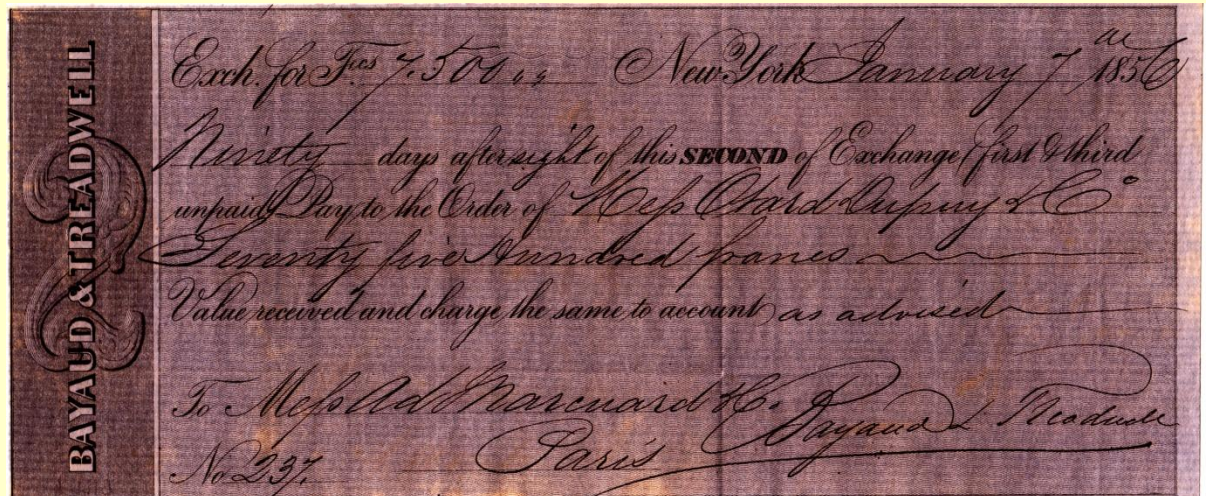 BAYAUD & TREADWELL
Exch. for Fcs 7.500 New-York January 7 1856
Ninety days after sight of this SECOND of Exchange (first & third
unpaid) Pay to the Order of Mess Otard Dupuy & Co
Seventy five Hundred francs
Value received and charge the same to account as advised
To Mess Ad. Marcuard & Co. Bayaud & Treadwell
Paris
No 237.